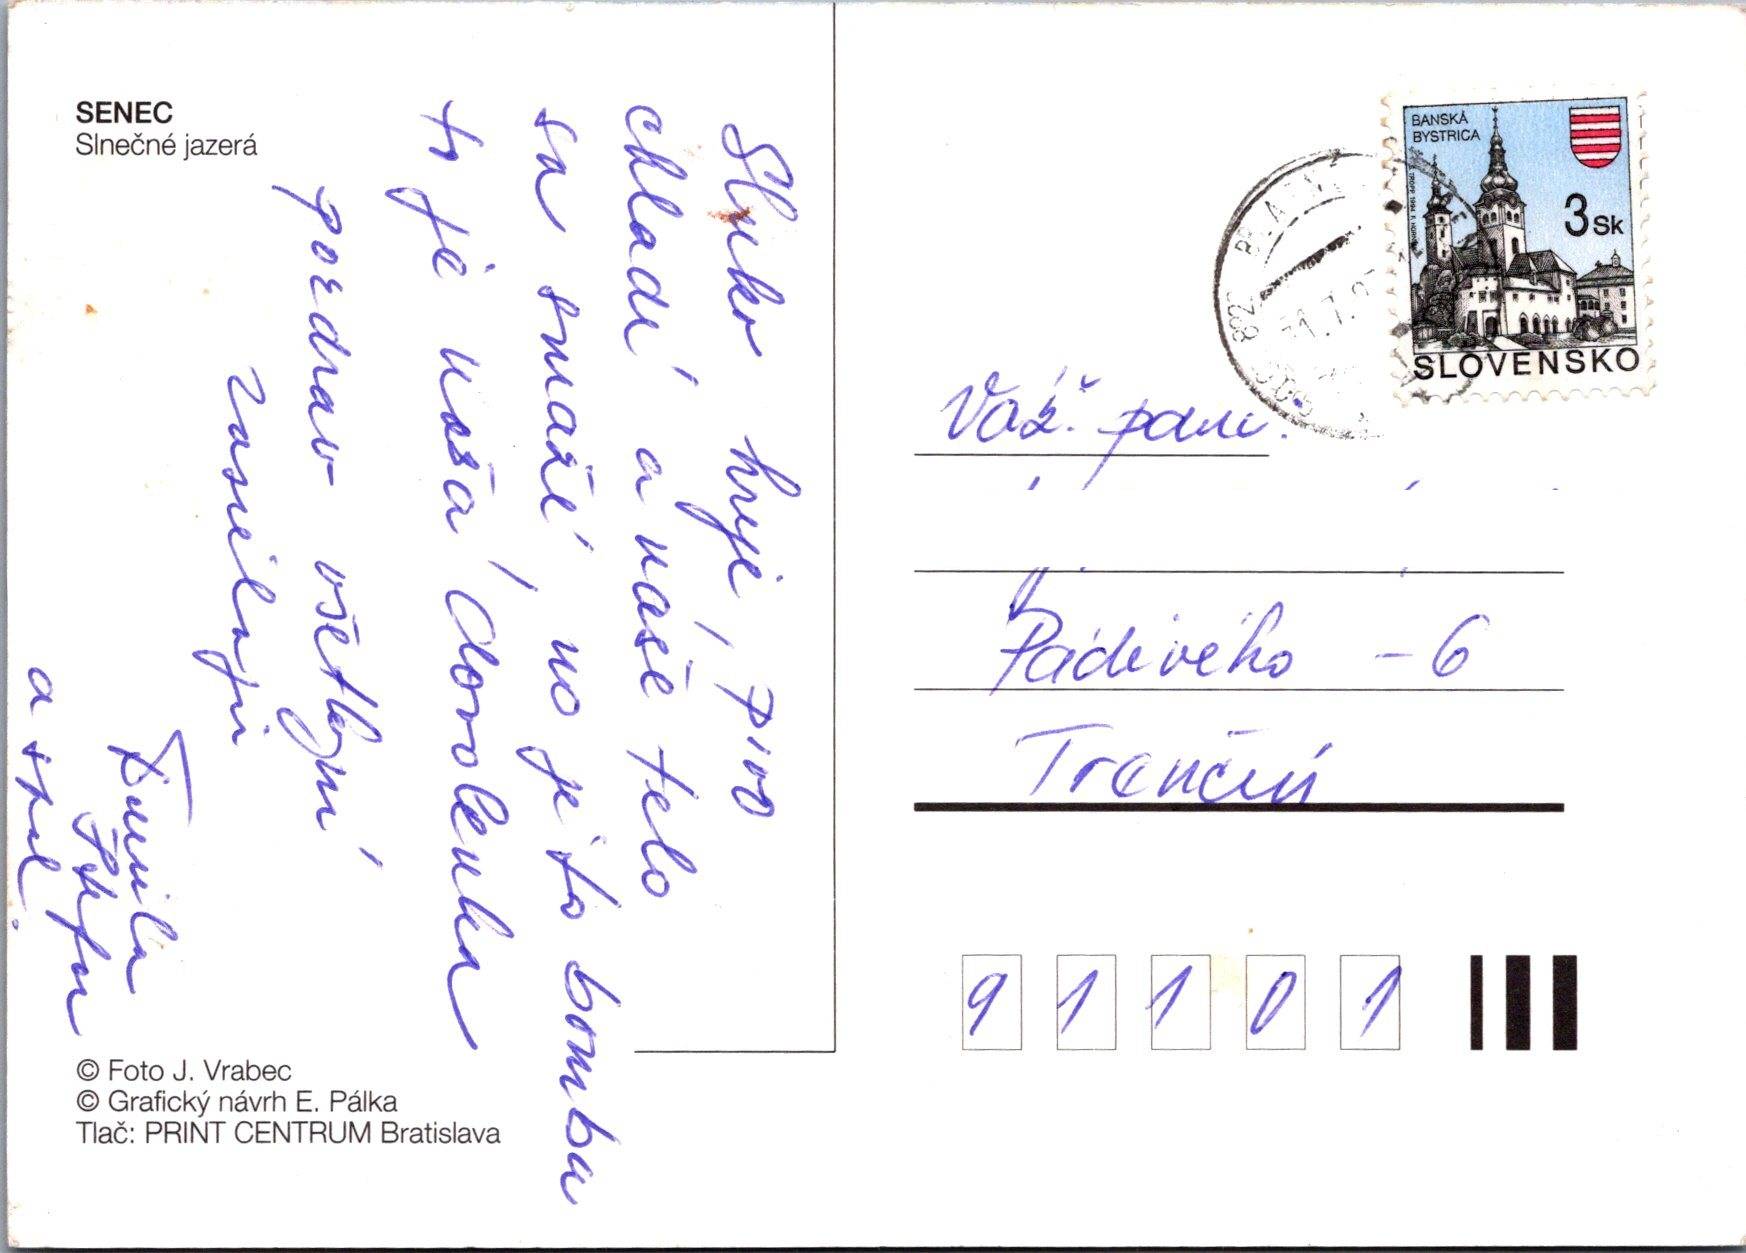 SENEC
Slnečné jazerá
Slnko hreje, pivo
chladí a naše telo
sa smaží, no je to bomba
to je naša dovolenka
pozdrav všetkým
zasielajú
Ľumila
Štefan
a spol.
© Foto J. Vrabec
© Grafický návrh E. Pálka
Tlač: PRINT CENTRUM Bratislava
BANSKÁ
BYSTRICA
3 Sk
SLOVENSKO
Váž. pani.
Pádivého - 6
Trenčín
9 1 1 0 1